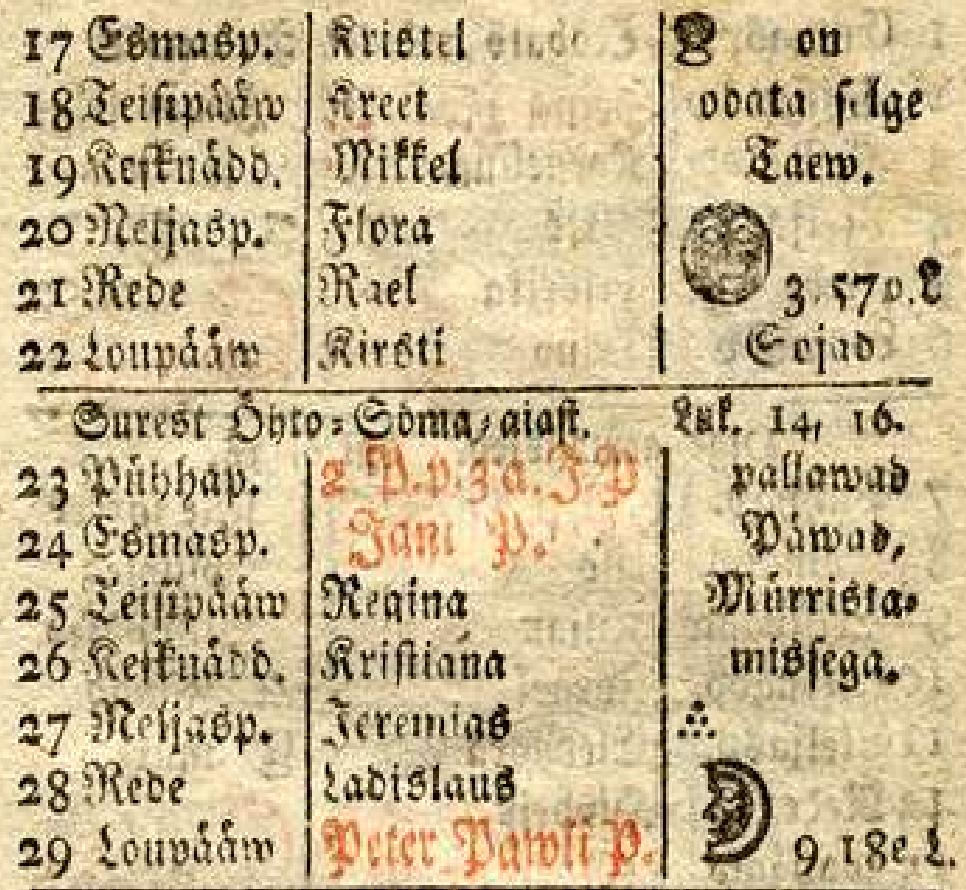 17 Esmasp. Kristel on
18 Teisipääw Kreet odata selge
19 Kesknädd. Mikkel Taew.
20 Neljasp. Flora
21 Rede Rael 3. 57 p. L
22 Loupääw Kirsti Sojad
Surest Öhto-Söma-aiast. Luk. 14, 16.
23 Pühhap. 2 P. p. 3 a. J. P pallawad
24 Esmasp. Jani P. Päwad,
25 Teisipääw Regina Mürrista-
26 Kesknädd. Kristiana missega.
27 Neljasp. Jeremias
28 Rede Ladislaus
29 Loupääw Peter Pawli P. 9, 18 e. L.